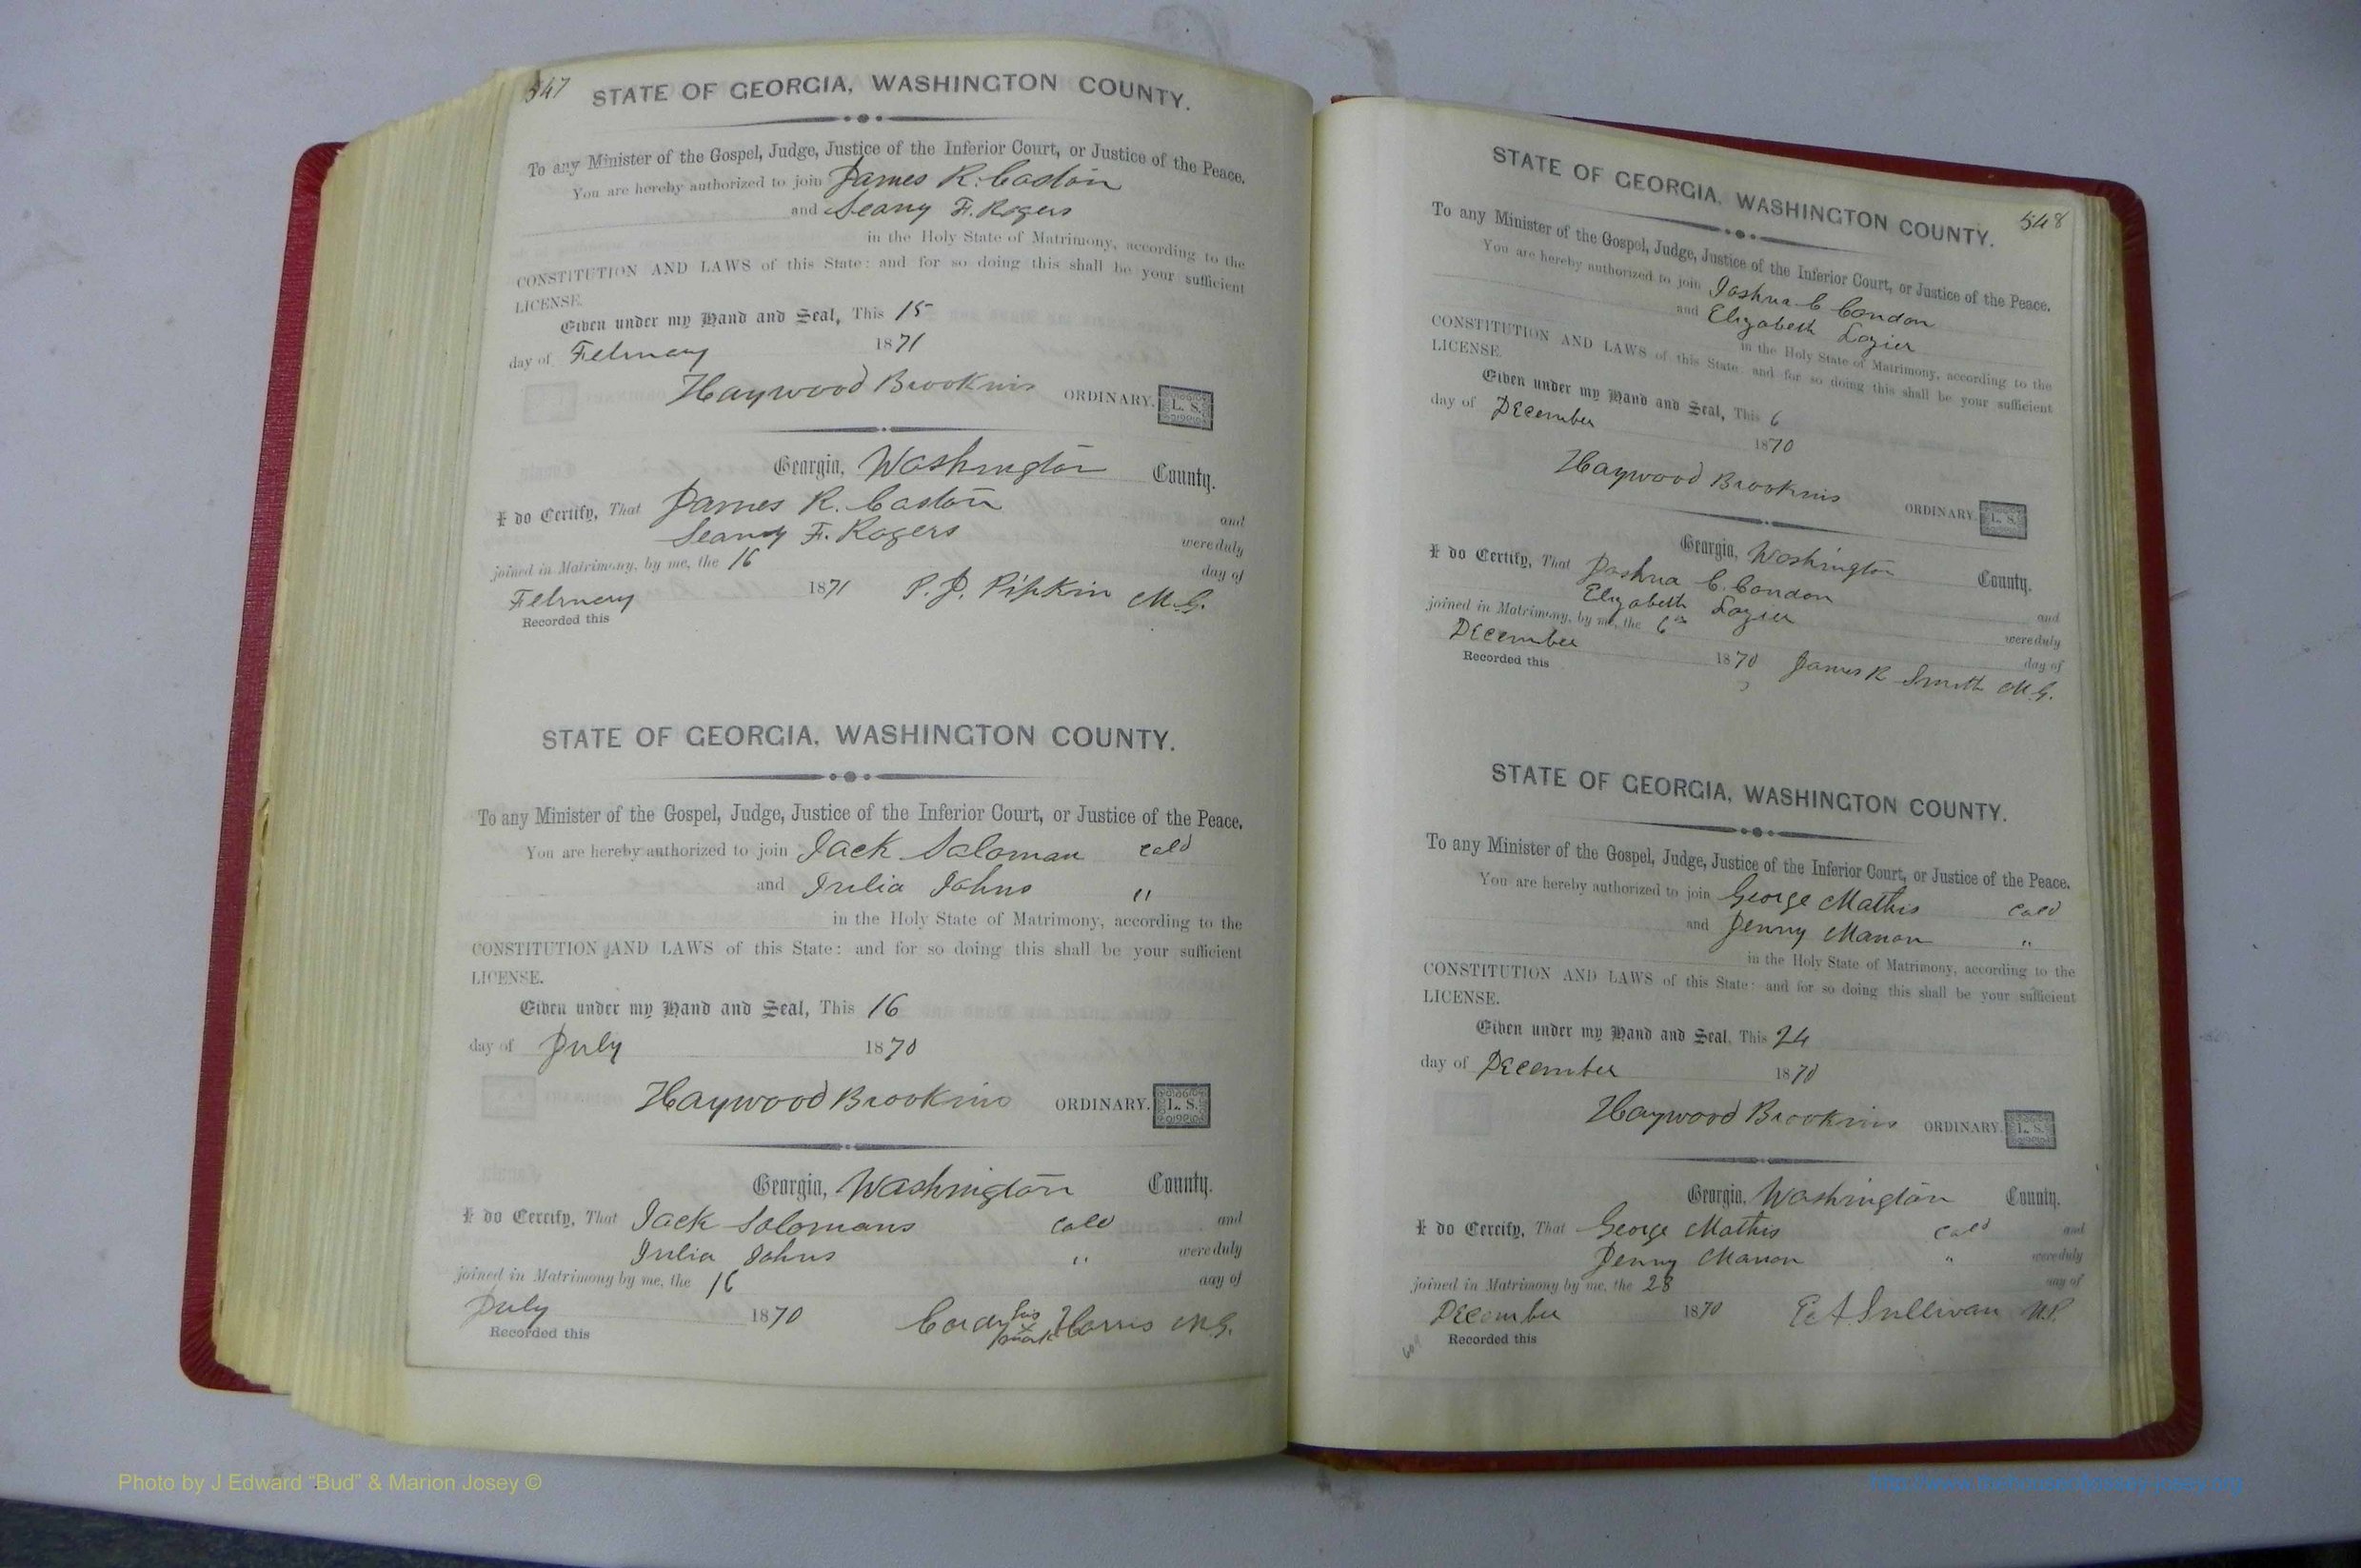 547
STATE OF GEORGIA, WASHINGTON COUNTY.
To any Minister of the Gospel, Judge, Justice of the Inferior Court, or Justice of the Peace.
You are hereby authorized to join James R. Caston
and Seany F. Rogers
in the Holy State of Matrimony, according to the
CONSTITUTION AND LAWS of this State: and for so doing this shall be your sufficient
LICENSE.
Given under my Hand and Seal, This 15
day of February 1871
Haywood Brookins ORDINARY. L. S.
Georgia, Washington County.
I do Certify, That James R. Caston and
Seany F. Rogers were duly
joined in Matrimony, by me, the 16 day of
February 1871 P. J. Pipkin M.G.
Recorded this
STATE OF GEORGIA, WASHINGTON COUNTY.
To any Minister of the Gospel, Judge, Justice of the Inferior Court, or Justice of the Peace.
You are hereby authorized to join Jack Soloman cold
and Julia Johns "
in the Holy State of Matrimony, according to the
CONSTITUTION AND LAWS of this State: and for so doing this shall be your sufficient
LICENSE.
Given under my Hand and Seal, This 16
day of July 1870
Haywood Brookins ORDINARY. L. S.
Georgia, Washington County.
I do Certify, That Jack Solomans cold and
Julia Johns " were duly
joined in Matrimony by me, the 16 day of
July 1870 Cordy his x mark Harris M.G.
Recorded this
548
STATE OF GEORGIA, WASHINGTON COUNTY.
To any Minister of the Gospel, Judge, Justice of the Inferior Court, or Justice of the Peace.
You are hereby authorized to join Joshua C Condon
and Elizabeth Lozier
in the Holy State of Matrimony, according to the
CONSTITUTION AND LAWS of this State: and for so doing this shall be your sufficient
LICENSE.
Given under my Hand and Seal, This 6
day of December 1870
Haywood Brookins ORDINARY. L. S.
Georgia, Washington County.
I do Certify, That Joshua C. Condon and
Elizabeth Lozier were duly
joined in Matrimony, by me, the 6th day of
December 1870 James R Smith M.G.
Recorded this
STATE OF GEORGIA, WASHINGTON COUNTY.
To any Minister of the Gospel, Judge, Justice of the Inferior Court, or Justice of the Peace.
You are hereby authorized to join George Mathis cold
and Jenny Manon "
in the Holy State of Matrimony, according to the
CONSTITUTION AND LAWS of this State: and for so doing this shall be your sufficient
LICENSE.
Given under my Hand and Seal, This 24
day of December 1870
Haywood Brookins ORDINARY. L. S.
Georgia, Washington County.
I do Certify, That George Mathis cold and
Jenny Manon " were duly
joined in Matrimony by me, the 28 day of
December 1870 E. A. Sullivan N.P.
Recorded this
Photo by J Edward "Bud" & Marion Josey ©